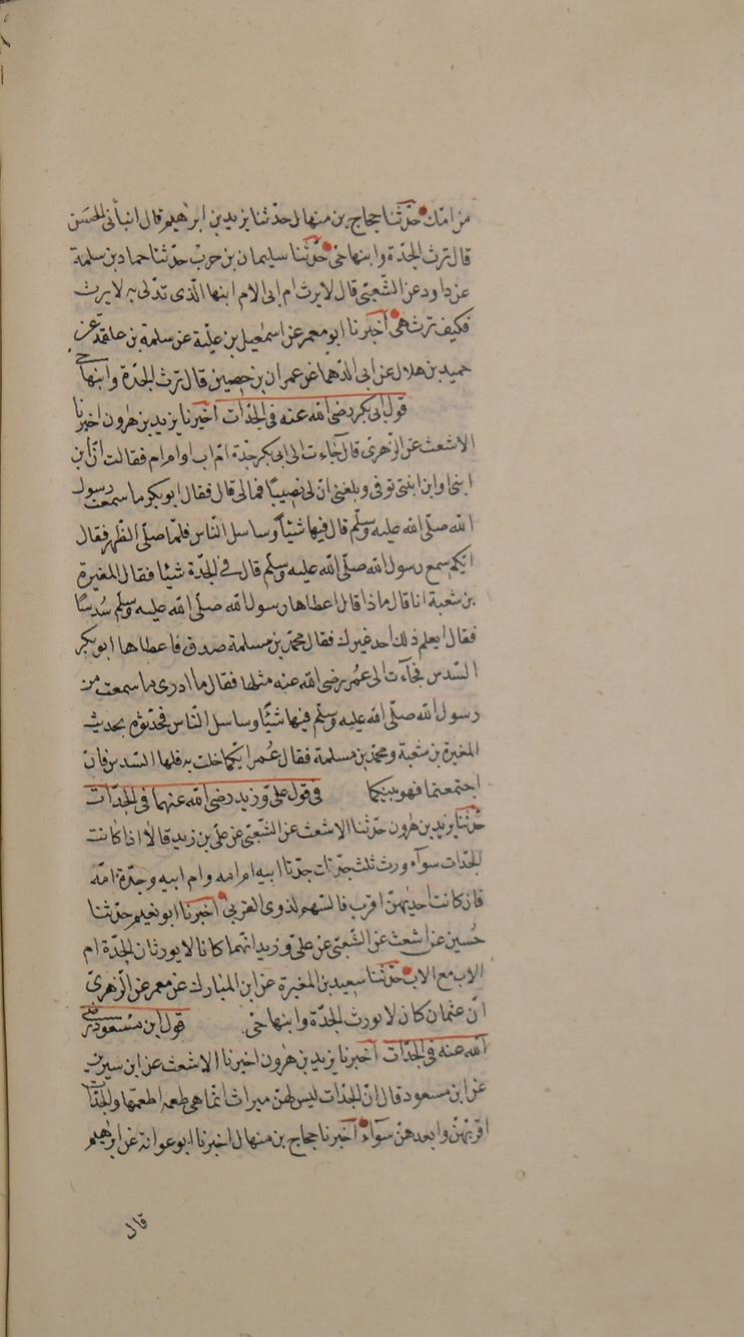 من امّك حدّثنا حجاج بن منهال حدّثنا يزيد بن ابرٰهيم قال انبأنى الحسن
قال ترث الجدّة وابنها حىّ حدّثنا سليمان بن حرب حدّثنا حماد بن سلمة
عن داود عن الشّعبىّ قال لا يرث ام ابى الام ابنها الّذى تدلى به لا يرث
فكيف ترث هى اخبرنا ابو معمر عن اسمٰعيل بن عليّة عن سلمة بن علقمة عن
حميد بن هلال عن ابى الدّهماء عن عمران بن حصين قال ترث الجدّة وابنها حى
قول ابى بكر رضى الله عنه فى الجدّات اخبرنا يزيد بن هٰرون اخبرنا
الاشعث عن الزّهرىّ قال جٓاءت الى ابى بكر جدّة امّ اب او ام ام فقالت انّ ابن
ابنى او ابن ابنتى توفى وبلغنى انّ لى نصيبًا فمالى قال فقال ابو بكر ما سمعت رسول
الله صلّى الله عليه وسلّم قال فيها شيئًا وساسل النّاس فلمّا صلّى الظّهر فقال
ايّكم سمع رسول الله صلّى الله عليه وسلّم قال فى الجدّة شيئًا فقال المغيرة
بن شعبة انا قال ماذا قال اعطاها رسول الله صلّى الله عليه وسلّم سُدسًا
فقال ايعلم ذلك احد غيرك فقال محمّد بن مسلمة صدق فاعطاها ابو بكر
السّدس فجآءت الى عمر رضى الله عنه مثلها فقال ما ادرى ما سمعت من
رسول الله صلّى الله عليه وسلّم فيها شيئًا وساسل النّاس فحدّثوه بحديث
المغيرة بن شعبة ومحمّد بن مسلمة فقال عُمر ايّكما خلت به فلها السّدس فان
اجتمعتما فهو بينكما فى قول علىّ وزيد رضى الله عنهما فى الجدّات
حدّثنا يزيد بن هٰرون حدّثنا الاشعث عن الشّعبىّ عن علىّ بن زيد قالا اذا كانت
الجدّات سوآء ورث ثلث جدّات جدّتا ابيه ام امه وام ابيه وجدّة امّه
فان كانت احديٰهنّ اقرب فالسّهم لذوى القربى اخبرنا ابو نعيم حدّثنا
حُسين عن اشعث عن الشّعبىّ عن علىّ وزيد انّهما كانا لا يورثان الجدّة ام
الاب مع الاب حدّثنا سعيد بن المغيرة عن ابن المبارك عن معمر عن الزّهرىّ
انّ عثمان كان لا يورث الجدّة وابنها حىّ قول ابن مسعود رضى
الله عنه فى الجدّات اخبرنا يزيد بن هٰرون اخبرنا الاشعث عن ابن سيرين
عن ابن مسعود قال انّ الجدّات ليس لهنّ ميراث انّما هى طعمه اطعمتها والجدّات
اقربهنّ وابعدهنّ سوآء اخبرنا حجاج بن منهال اخبرنا ابو عوانة عن ابرٰهيم
قال